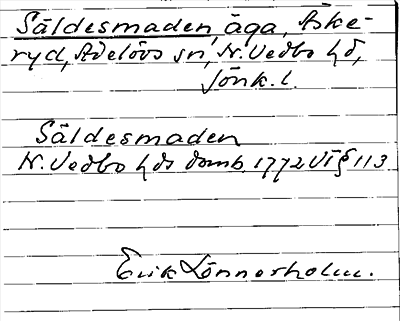 Säldesmaden, äga, Äske-
ryd, Adelövs sn, N. Vedbo hd,
Jönk. l.
Säldesmaden
N. Vedbo hds domb. 1772 VI § 113
Erik Lönnerholm.